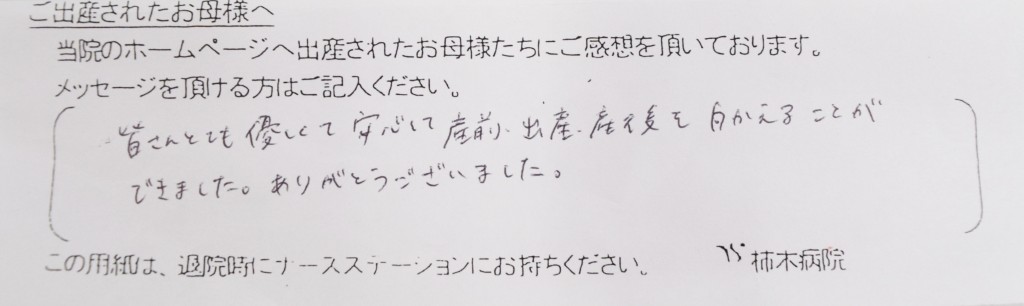 ご出産されたお母様へ
当院のホームページへ出産されたお母様たちにご感想を頂いております。
メッセージを頂ける方はご記入ください。
皆さんとても優しくて安心して産前、出産、産後を向かえることが
できました。ありがとうございました。
この用紙は、退院時にナースステーションにお持ちください。
柿木病院